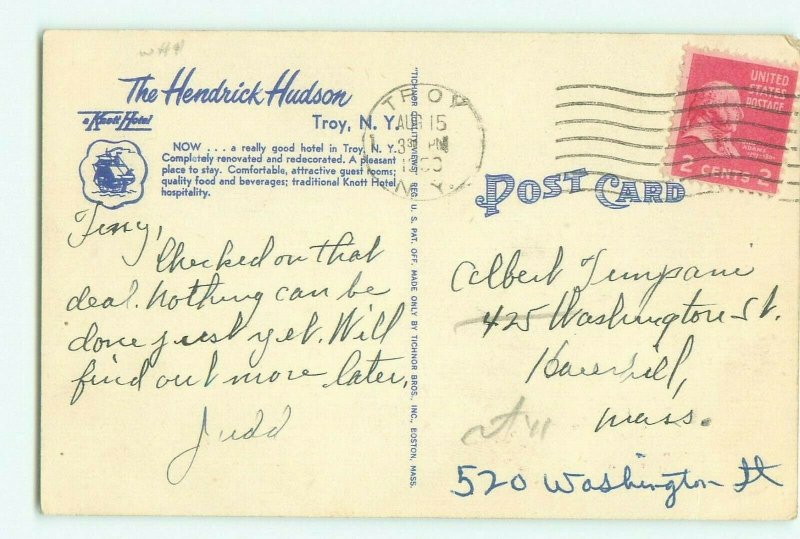 The Hendrick Hudson
a Knott Hotel
Troy, N. Y.
NOW . . . a really good hotel in Troy, N. Y.
Completely renovated and redecorated. A pleasant
place to stay. Comfortable, attractive guest rooms;
quality food and beverages; traditional Knott Hotel
hospitality.
Checked on that
deal. Nothing can be
done just yet. Will
find out more later,
Judd
"TICHNOR QUALITY VIEWS" REG. U. S. PAT. OFF. MADE ONLY BY TICHNOR BROS., INC., BOSTON, MASS.
TROY
AUG 15
PM
N.Y.
UNITED
STATES
POSTAGE
2 CENTS 2
POST CARD
Albert Timpani
425 Washington St.
Haverhill,
Mass.
520 Washington St